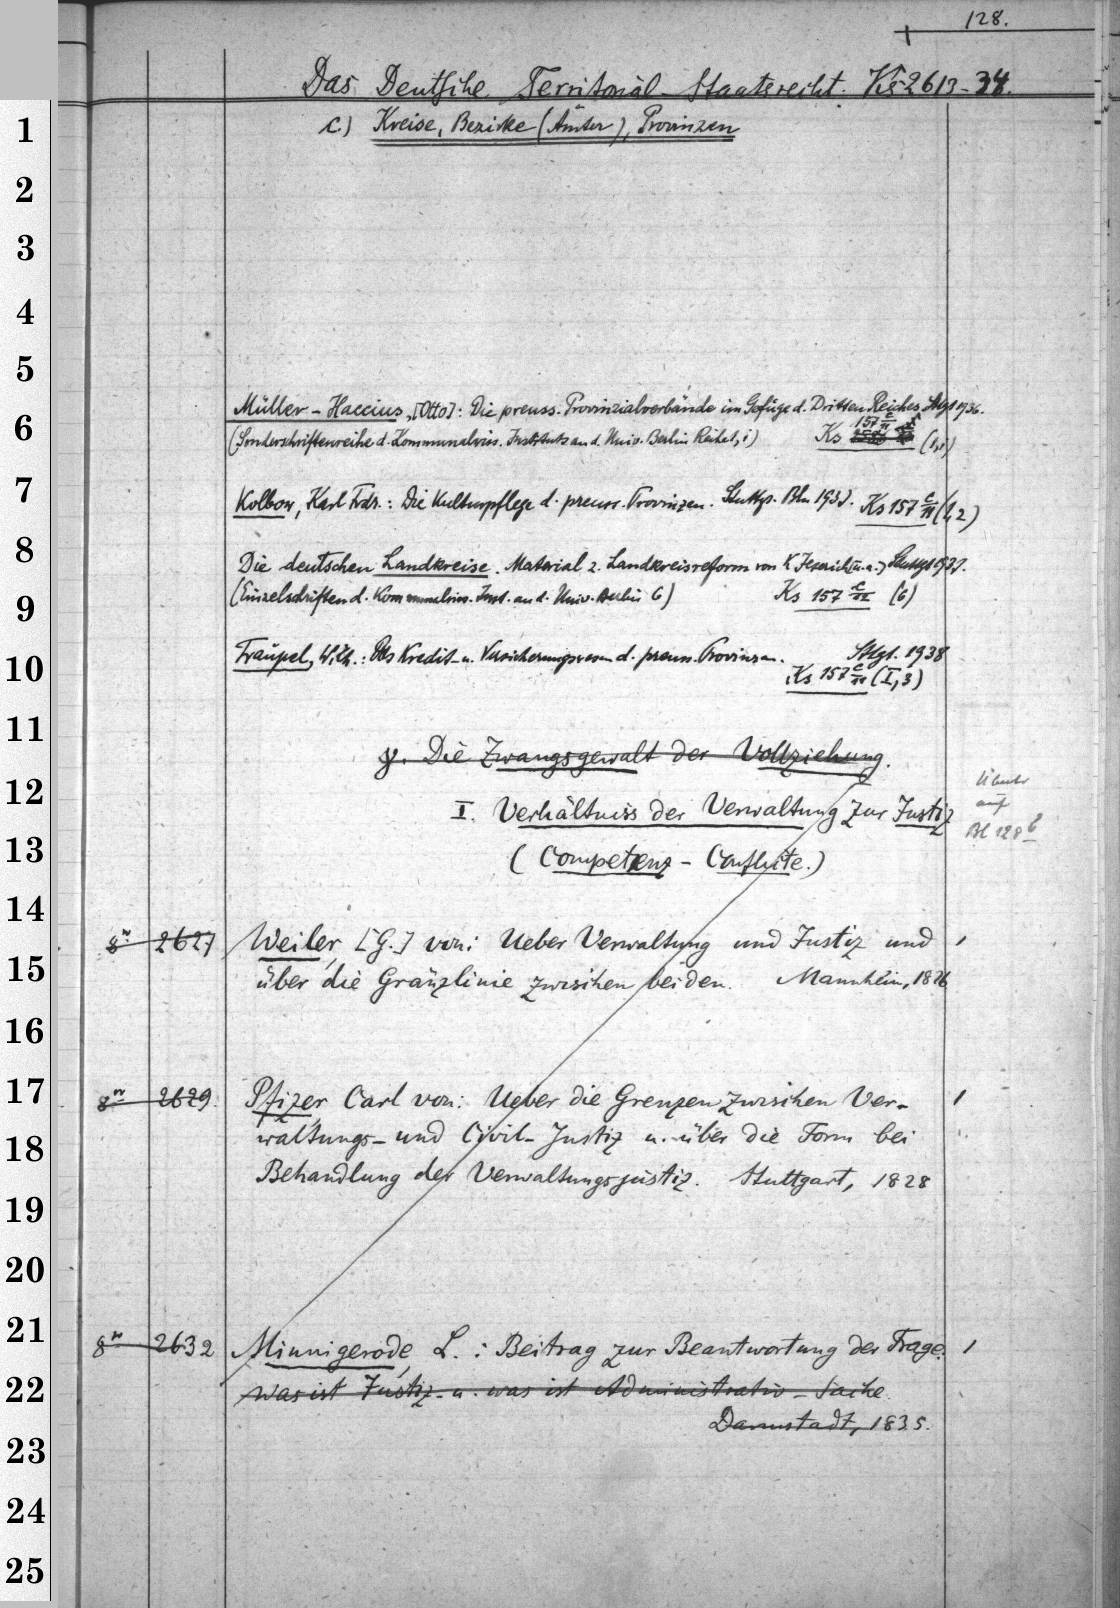 128.
Das Deutsche Territorial-Staatsrecht. Ks 2613-34.
c) Kreise, Bezirke (Ämter), Provinzen
1
2
3
4
5
Müller-Haccius, [Otto]: Die preuss. Provinzialverbände im Gefüge d. Dritten Reiches. Stgt 1936.
6
(Sonderschriftenreihe d. Kommunalwiss. Instituts an d. Univ. Berlin Reihe 1, 1) Ks 157 c/11 (1,1)
7
Kolbow, Karl Frdr.: Die Kulturpflege d. preuss. Provinzen. Stuttg. Bln 1937. Ks 157 c/11 (1,2)
8
Die deutschen Landkreise. Material z. Landkreisreform von K Jeserich (u.a.) Stuttgt 1937.
9
(Einzelschriften d. Kommunalwiss. Inst. an d. Univ. Berlin 6) Ks 157 c/11 (6)
10
Traupel, Wilh.: Das Kredit- u. Versicherungswesen d. preuss. Provinzen. Stgt. 1938
Ks 157 c/11 (I,3)
11
y. Die Zwangsgewalt der Vollziehung.
12
I. Verhältniss der Verwaltung zur Justiz
auf
Bl 128 b
13
(Competenz-Conflicte.)
14
8º 2627 Weiler, [G.] von: Ueber Verwaltung und Justiz und 1
15
über die Gränzlinie zwischen beiden. Mannheim, 1826
16
17
8º 2629 Pfizer, Carl von: Ueber die Grenzen zwischen Ver- 1
18
waltungs- und Civil-Justiz u. über die Form bei
Behandlung der Verwaltungsjustiz. Stuttgart, 1828
19
20
21
8º 2632 Minnigerode, L.: Beitrag zur Beantwortung der Frage: 1
22
was ist Justiz- u. was ist Administrativ-Sache.
Darmstadt, 1835.
23
24
25